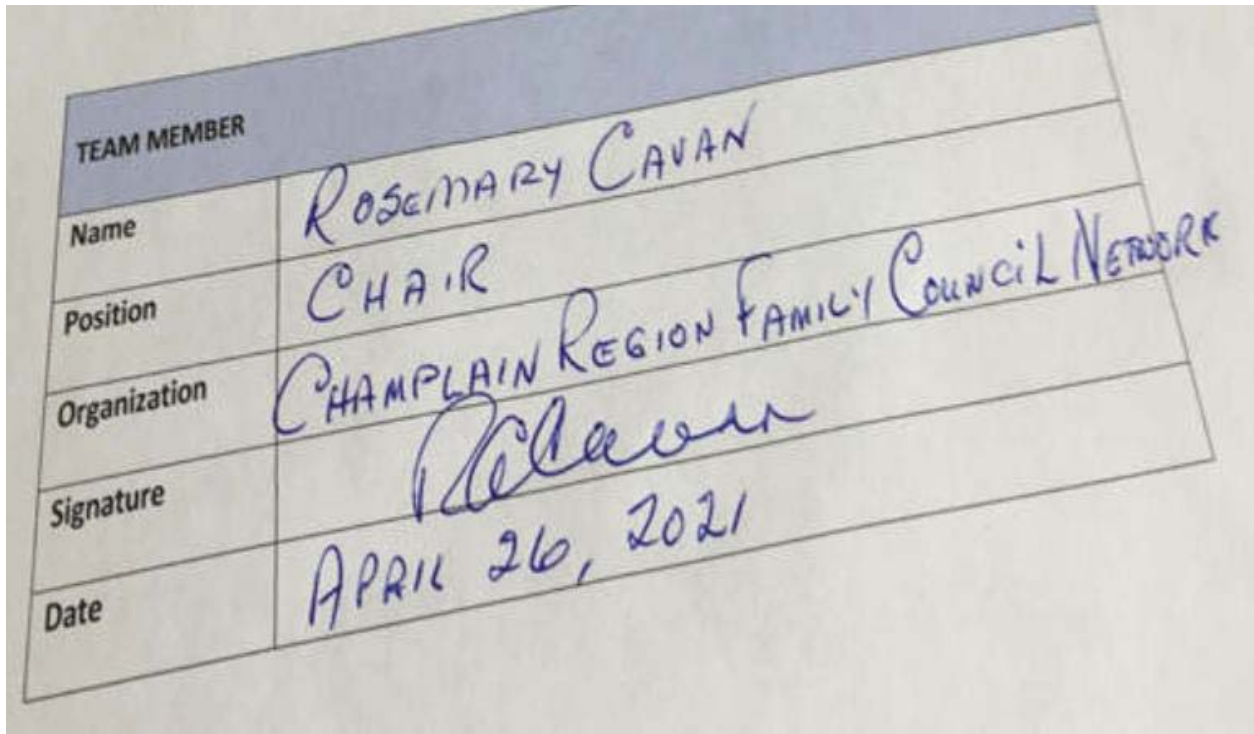 TEAM MEMBER
Name ROSEMARY CAVAN
Position CHAIR
Organization CHAMPLAIN REGION FAMILY COUNCIL NETWORK
Signature RCavan
Date APRIL 26, 2021